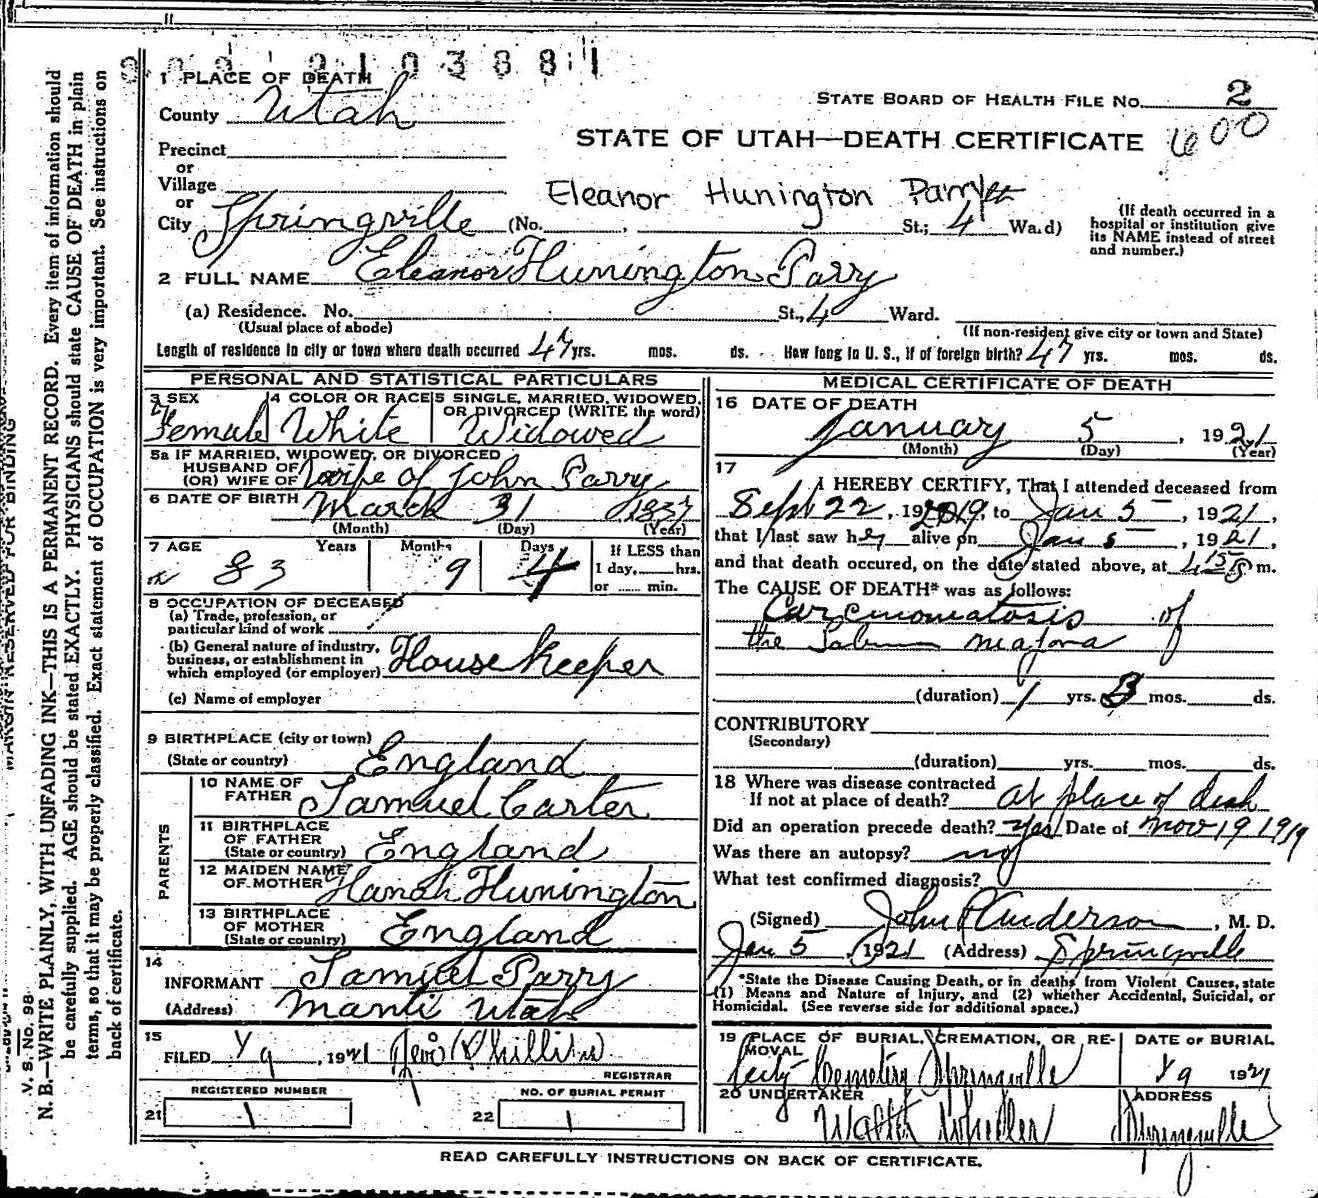 210388 1
1 PLACE OF DEATH
County Utah
STATE BOARD OF HEALTH FILE NO. 2
600
STATE OF UTAH—DEATH CERTIFICATE
Precinct
or
Village
or
Eleanor Hunington Parry
City Springville (No. , St.; 4 Ward)
(If death occurred in a hospital or institution give its NAME instead of street and number.)
2 FULL NAME Eleanor Hunington Parry
(a) Residence. No. St., 4 Ward.
(Usual place of abode) (If non-resident give city or town and State)
Length of residence in city or town where death occurred 47 yrs. mos. ds. How long in U. S., if of foreign birth? 47 yrs. mos. ds.
PERSONAL AND STATISTICAL PARTICULARS
3 SEX Female
4 COLOR OR RACE White
5 SINGLE, MARRIED, WIDOWED, OR DIVORCED (WRITE the word) Widowed
5a IF MARRIED, WIDOWED, OR DIVORCED
HUSBAND OF
(OR) WIFE OF wife of John Parry
6 DATE OF BIRTH March 31 1837
(Month) (Day) (Year)
7 AGE Years Months Days If LESS than
83 9 4 1 day, hrs.
or min.
8 OCCUPATION OF DECEASED
(a) Trade, profession, or
particular kind of work
(b) General nature of industry,
business, or establishment in
which employed (or employer) House Keeper
(c) Name of employer
9 BIRTHPLACE (city or town)
(State or country) England
PARENTS
10 NAME OF
FATHER Samuel Carter
11 BIRTHPLACE
OF FATHER
(State or country) England
12 MAIDEN NAME
OF MOTHER Hanah Hunington
13 BIRTHPLACE
OF MOTHER
(State or country) England
14
INFORMANT Samuel Parry
(Address) Manti Utah
15
FILED 1/9, 1921
REGISTRAR
REGISTERED NUMBER
21 1
NO. OF BURIAL PERMIT
22 1
MEDICAL CERTIFICATE OF DEATH
16 DATE OF DEATH
January 5, 1921
(Month) (Day) (Year)
17
I HEREBY CERTIFY, That I attended deceased from
Sept 22, 1919, to Jan 5, 1921,
that I last saw her alive on Jan 5, 1921,
and that death occured, on the date stated above, at m.
The CAUSE OF DEATH* was as follows:
Carcinomatosis of
the Labium majora
(duration) 1 yrs. 3 mos. ds.
CONTRIBUTORY
(Secondary)
(duration) yrs. mos. ds.
18 Where was disease contracted
If not at place of death? at place of death
Did an operation precede death? Yes Date of Nov 19 1919
Was there an autopsy? no
What test confirmed diagnosis?
(Signed) John P Anderson, M. D.
Jan 5, 1921 (Address) Springville
*State the Disease Causing Death, or in deaths from Violent Causes, state
(1) Means and Nature of Injury, and (2) whether Accidental, Suicidal, or
Homicidal. (See reverse side for additional space.)
19 PLACE OF BURIAL, CREMATION, OR RE- DATE OF BURIAL
MOVAL
City Cemetery Springville 1/9 1921
20 UNDERTAKER ADDRESS
Walter Wheeler Springville
READ CAREFULLY INSTRUCTIONS ON BACK OF CERTIFICATE.
MARGIN RESERVED FOR BINDING
V. S. No. 98
N. B.—WRITE PLAINLY, WITH UNFADING INK—THIS IS A PERMANENT RECORD. Every item of information should
be carefully supplied. AGE should be stated EXACTLY. PHYSICIANS should state CAUSE OF DEATH in plain
terms, so that it may be properly classified. Exact statement of OCCUPATION is very important. See instructions on
back of certificate.